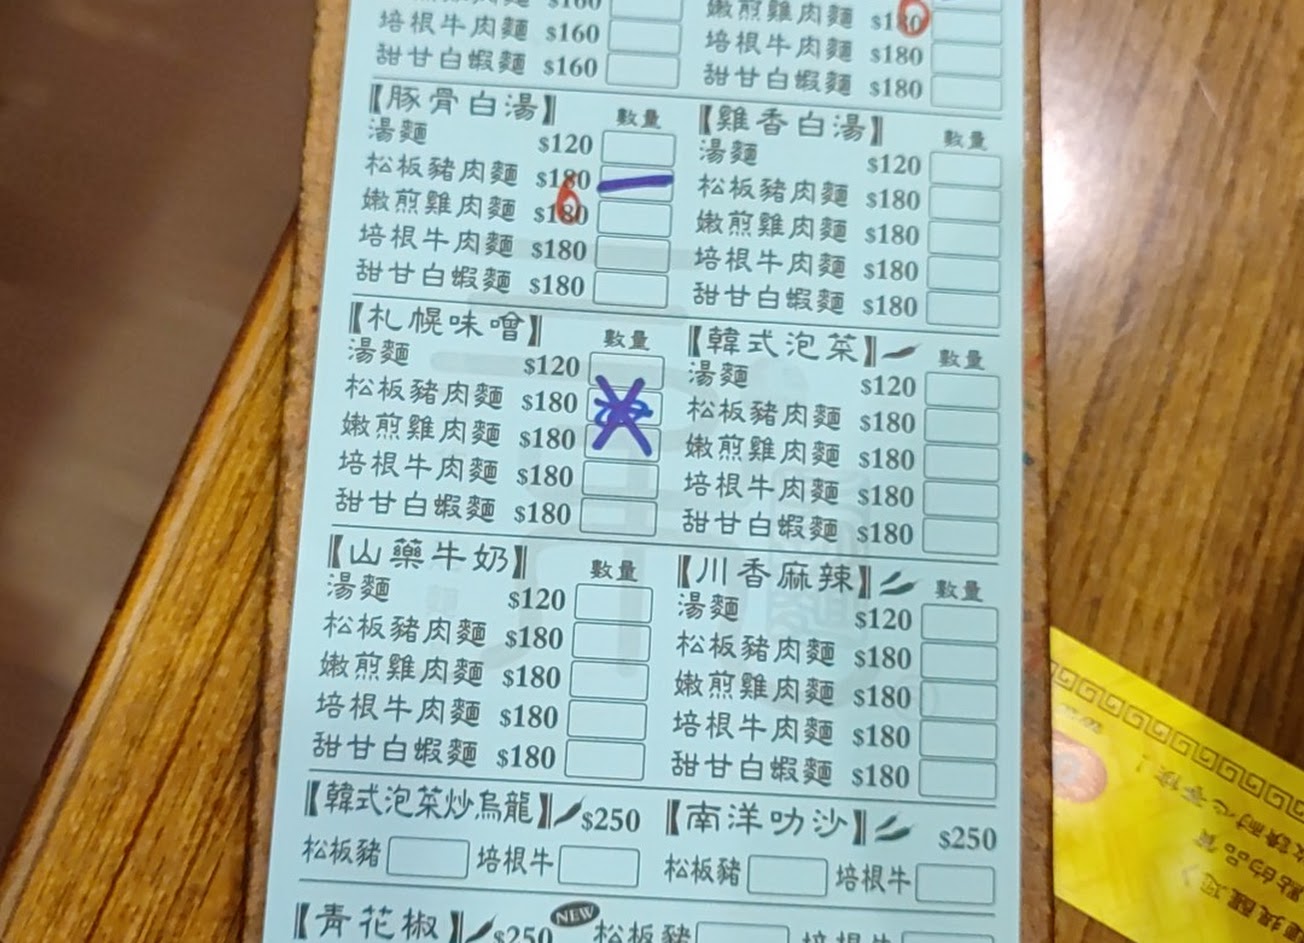 培根牛肉麵 $160
甜甘白蝦麵 $160
嫩煎雞肉麵 $180
培根牛肉麵 $180
甜甘白蝦麵 $180
【豚骨白湯】 數量
湯麵 $120
松板豬肉麵 $180
嫩煎雞肉麵 $180 6
培根牛肉麵 $180
甜甘白蝦麵 $180
【雞香白湯】 數量
湯麵 $120
松板豬肉麵 $180
嫩煎雞肉麵 $180
培根牛肉麵 $180
甜甘白蝦麵 $180
【札幌味噌】 數量
湯麵 $120
松板豬肉麵 $180
嫩煎雞肉麵 $180
培根牛肉麵 $180
甜甘白蝦麵 $180
【韓式泡菜】 數量
湯麵 $120
松板豬肉麵 $180
嫩煎雞肉麵 $180
培根牛肉麵 $180
甜甘白蝦麵 $180
【山藥牛奶】 數量
湯麵 $120
松板豬肉麵 $180
嫩煎雞肉麵 $180
培根牛肉麵 $180
甜甘白蝦麵 $180
【川香麻辣】 數量
湯麵 $120
松板豬肉麵 $180
嫩煎雞肉麵 $180
培根牛肉麵 $180
甜甘白蝦麵 $180
【韓式泡菜炒烏龍】 $250
松板豬 培根牛
【南洋叻沙】 $250
松板豬 培根牛
【青花椒】 $250 NEW 松板豬 培根牛